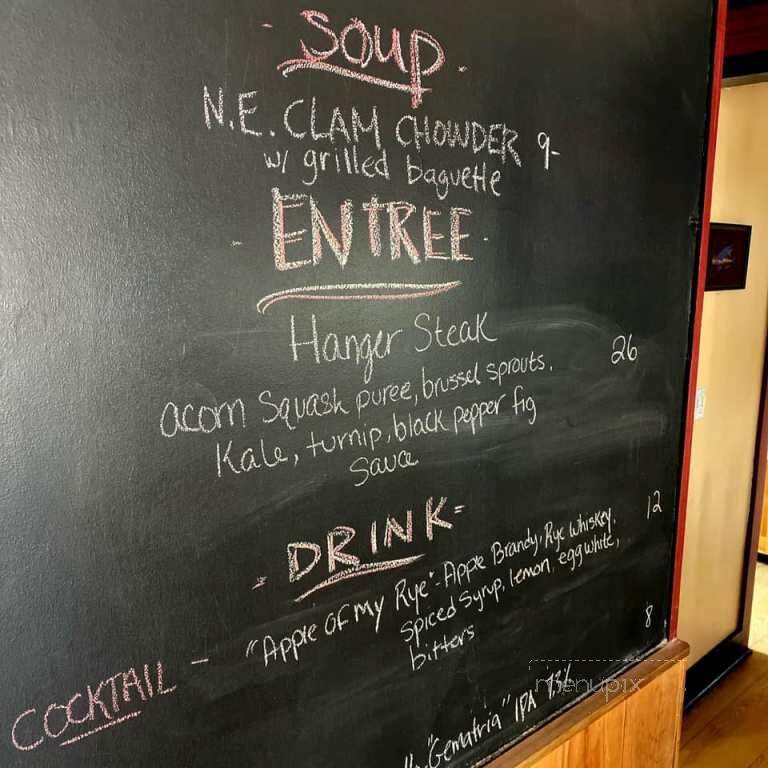 - SOUP -
N.E. CLAM CHOWDER 9-
w/ grilled baguette
- ENTREE -
Hanger Steak
26
acorn Squash puree, brussel sprouts,
Kale, turnip, black pepper fig
Sauce
- DRINK -
12
COCKTAIL - "Apple of My Rye" - Apple Brandy, Rye Whiskey,
Spiced Syrup, lemon, egg white,
bitters
8
"Gematria" IPA
menupix